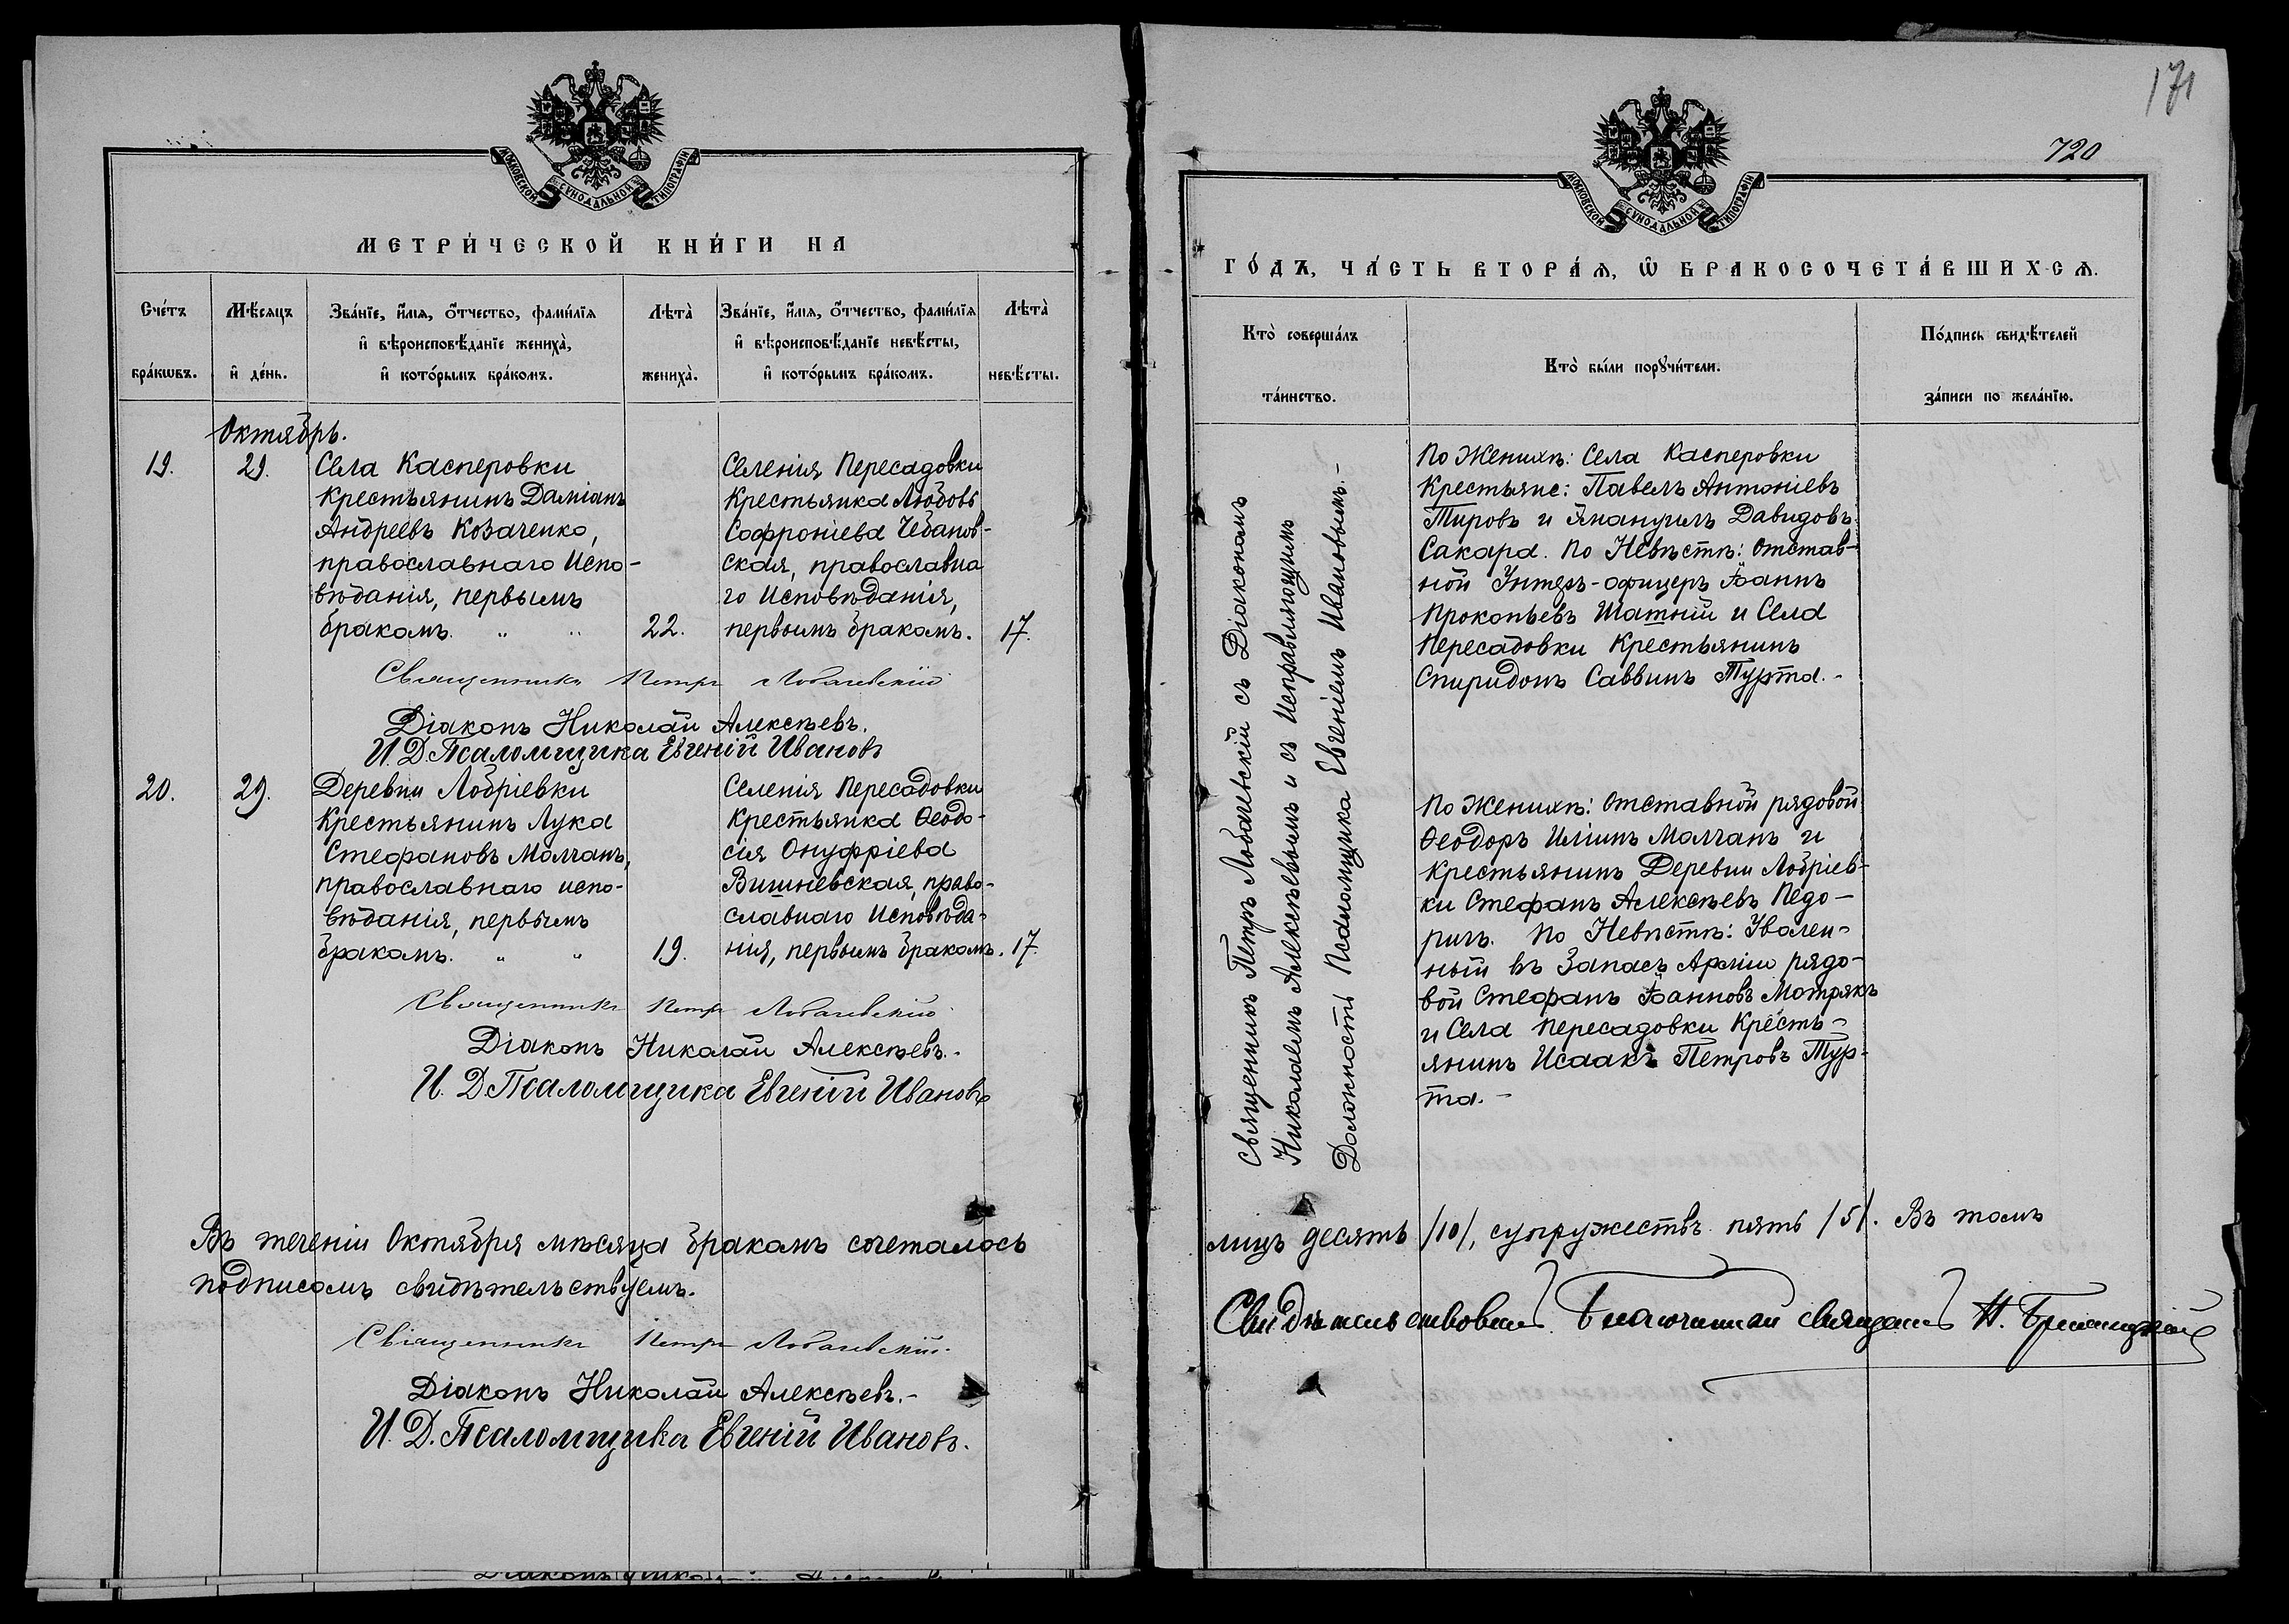 171
720
МОСКОВСКОЙ СѴНОДАЛЬНОЙ ТИПОГРАФІИ
МЕТРИ́ЧЕСКОЙ КНИ́ГИ НА
Сче́тъ бра́кѡвъ.
Мѣ́сяцъ и҆ де́нь.
Зва́нїе, и҆́мѧ, ѻ҆́тчество, фами́лїѧ
и҆ вѣроисповѣ́данїе жениха̀,
и҆ кото́рымъ бра́комъ.
Лѣта̀ жениха̀.
Зва́нїе, и҆́мѧ, ѻ҆́тчество, фами́лїѧ
и҆ вѣроисповѣ́данїе невѣ́сты,
и҆ кото́рымъ бра́комъ.
Лѣта̀ невѣ́сты.
Октябрь.
19.
29.
Села Касперовки
Крестьянинъ Даміанъ
Андреевъ Козаченко,
православнаго Испо-
вѣданія, первымъ
бракомъ. " "
22.
Селенія Пересадовки
Крестьянка Любовь
Софроніева Чебанов-
ская, православна
го Исповѣданія,
первымъ бракомъ.
17.
Священникъ Петръ Лобачевскій
Діаконъ Николай Алексѣевъ.
И. Д. Псаломщика Евгеній Ивановъ
20.
29.
Деревни Лобріевки
Крестьянинъ Лука
Стефановъ Молчанъ,
православнаго испо-
вѣданія, первымъ
бракомъ. " "
19.
Селенія Пересадовки
Крестьянка Ѳеодо-
сія Онуфріева
Вишневская, право-
славнаго Исповѣда-
нія, первымъ бракомъ.
17.
Священникъ Петръ Лобачевскій
Діаконъ Николай Алексѣевъ.-
И. Д. Псаломщика Евгеній Ивановъ
Въ теченіи Октября мѣсяца бракомъ сочеталось
подписомъ свидѣтельствуемъ.
Священникъ Петръ Лобачевскій.
Діаконъ Николай Алексѣевъ.-
И. Д. Псаломщика Евгеній Ивановъ.
МОСКОВСКОЙ СѴНОДАЛЬНОЙ ТИПОГРАФІИ
ГО́ДЪ, ЧА́СТЬ ВТОРА́Ѧ, Ѡ҆ БРАКОСОЧЕТА́ВШИХСѦ.
Кто̀ соверша́лъ
та́инство.
Кто̀ бы́ли порꙋчи́тели.
По́дпись свидѣ́телей
за́писи по жела́нїю.
Священникъ Петръ Лобачевскій съ Діакономъ
Николаемъ Алексѣевымъ и съ Исправляющимъ
Должность Псаломщика Евгеніемъ Ивановымъ.-
По Женихѣ: Села Касперовки
Крестьяне: Павелъ Антоніевъ
Тировъ и Эмануилъ Давидовъ
Сакара. По Невѣстѣ: Отстав-
ной Унтеръ-офицеръ Іоаннъ
Прокопьевъ Шатній и Села
Пересадовки Крестьянинъ
Спиридонъ Саввинъ Турта.-
По Женихѣ: Отставной рядовой
Ѳеодоръ Иліинъ Молчанъ и
Крестьянинъ Деревни Лобріев-
ки Стефанъ Алексѣевъ Педо-
ричъ. По Невѣстѣ: Уволен-
ный въ Запасъ Арміи рядо-
вой Стефанъ Іоанновъ Мотрякъ
и Села Пересадовки Кресть-
янинъ Исаакъ Петровъ Тур-
та.-
лицъ десять /10/, супружествъ пять /5/. Въ томъ
Свидѣтельствовалъ Благочинный священникъ Н.